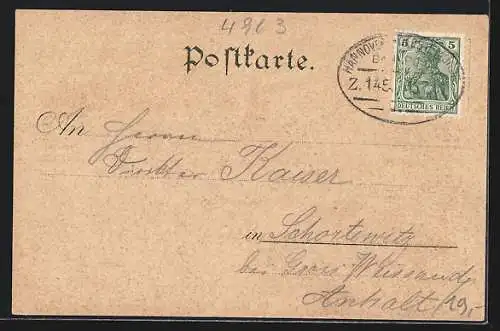 4963
Postkarte.
HANNOVER
Z. 145
5
DEUTSCHES REICH
An Herrn
Direktor Kaiser
in Schortewitz
bei Gross Weissand
Anhalt
29,-